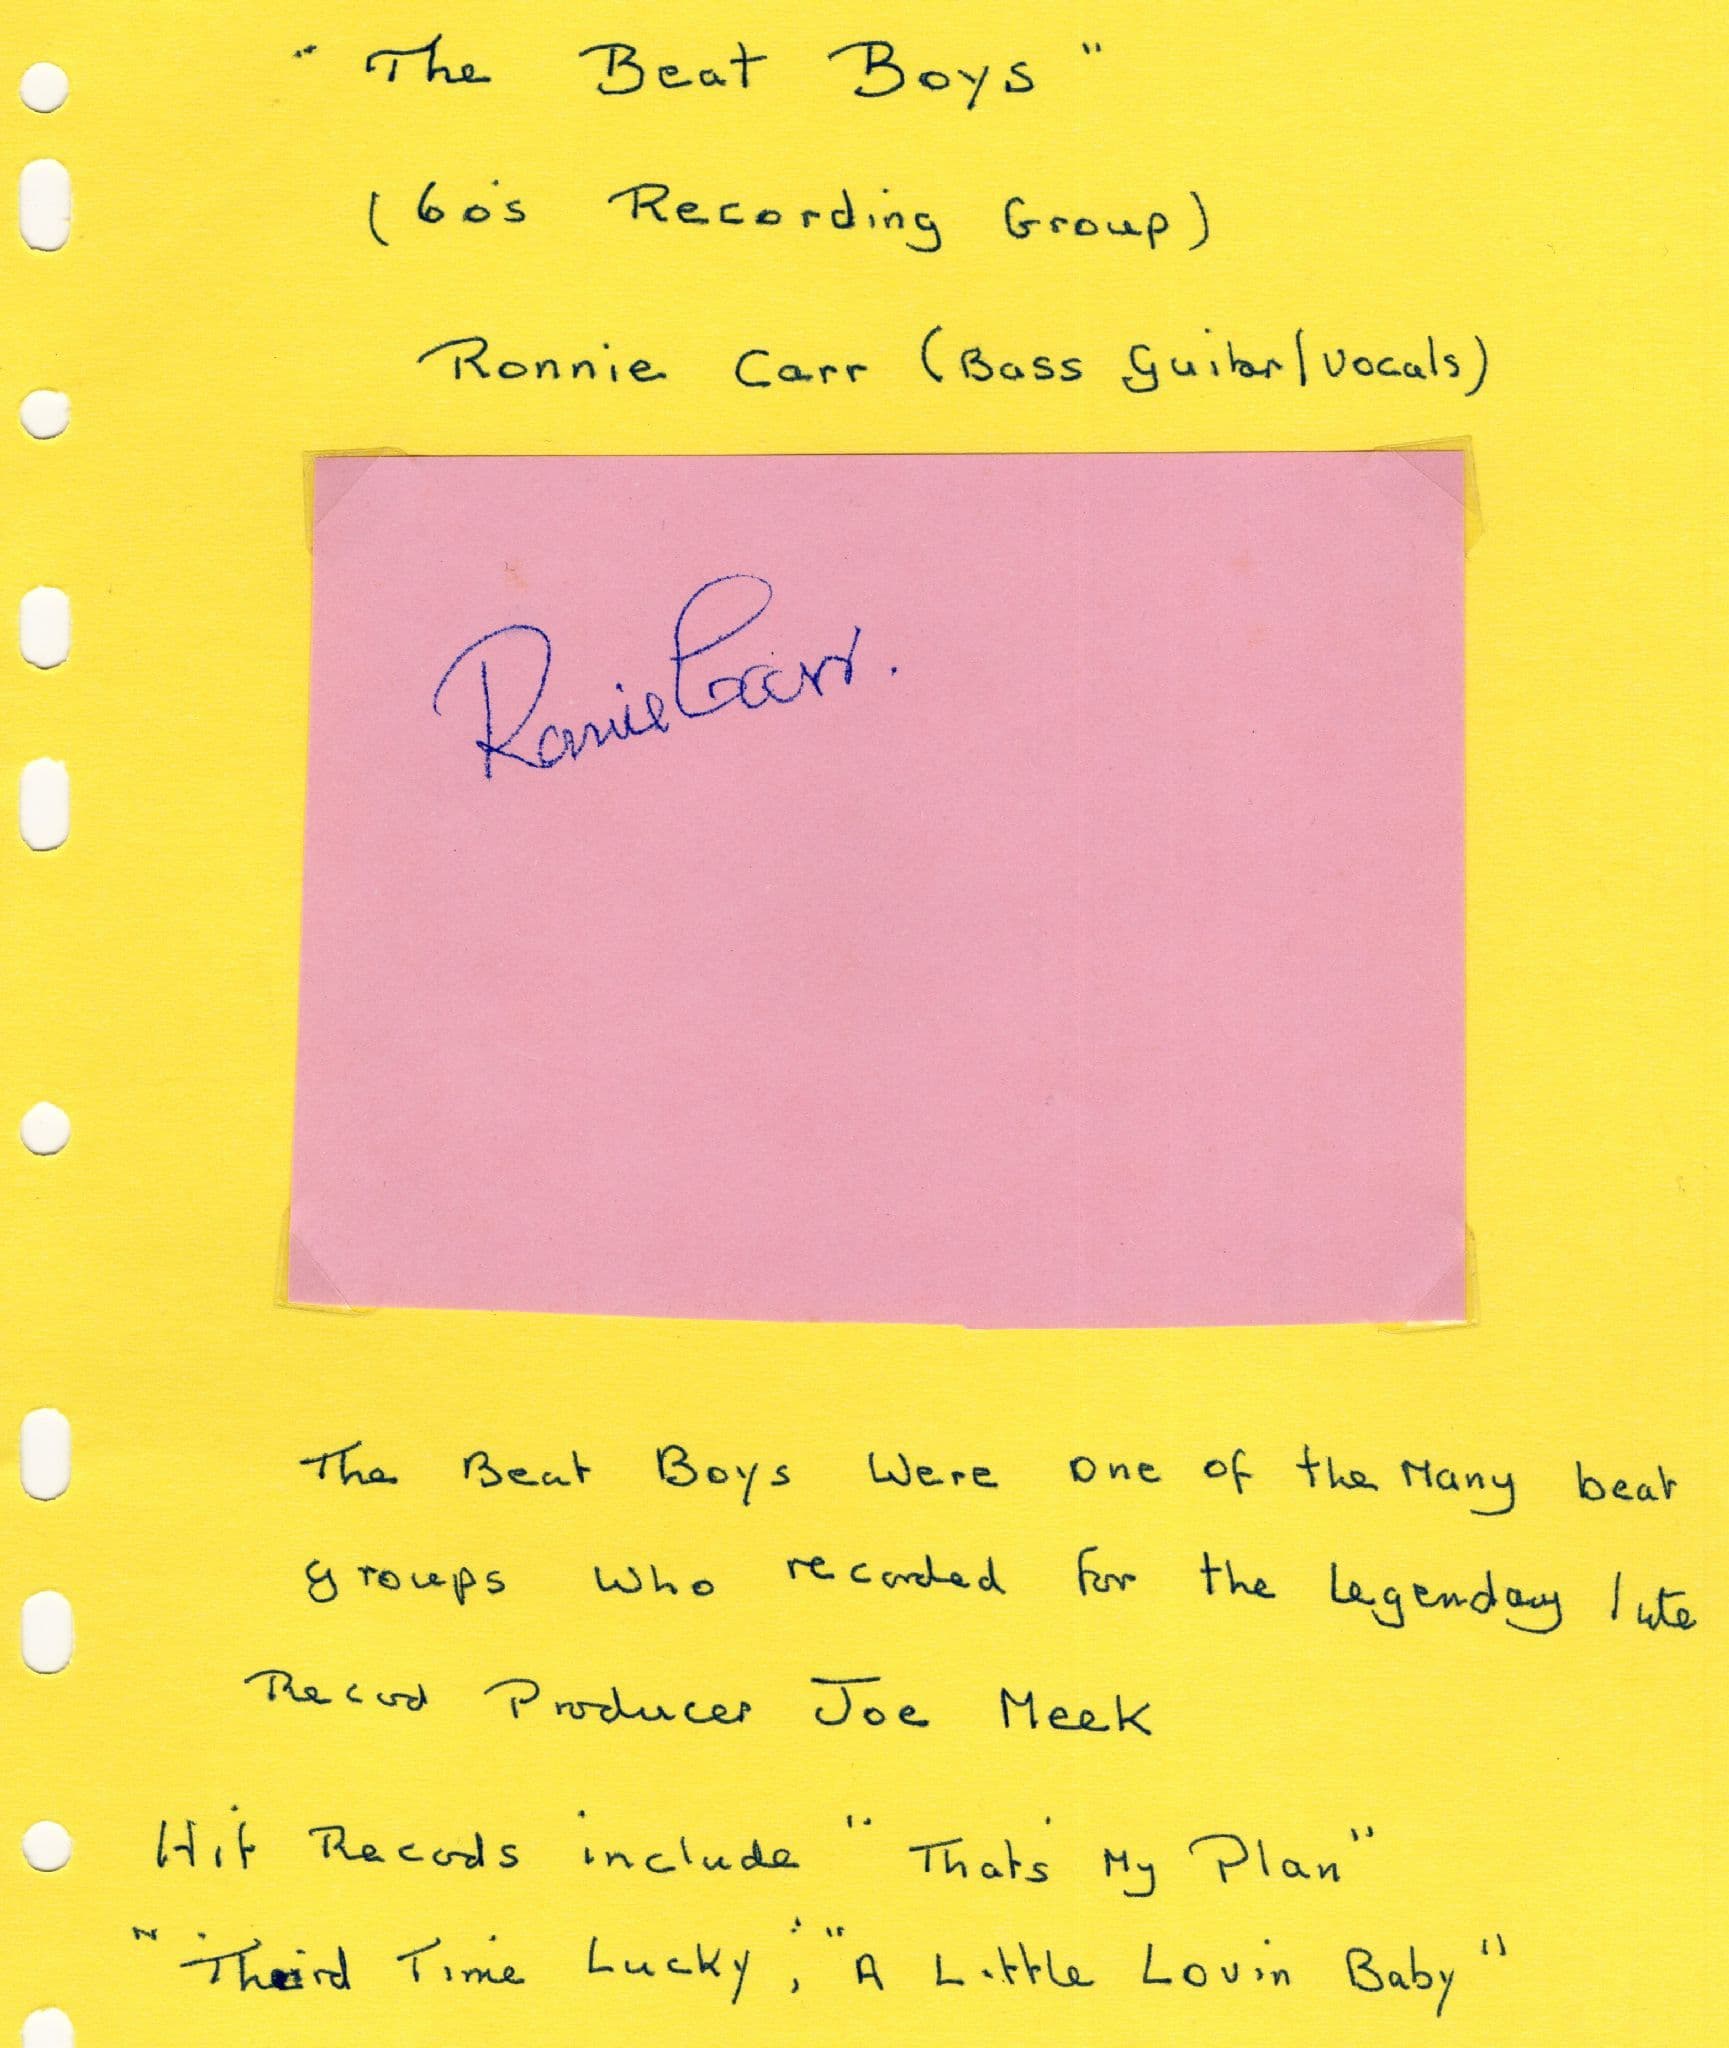 "The Beat Boys"
(60's Recording Group)
Ronnie Carr (Bass Guitar/Vocals)
Ronnie Carr.
The Beat Boys Were one of the Many beat
groups who recorded for the Legendary late
Record Producer Joe Meek
Hit Records include "That's My Plan"
"Third Time Lucky", "A Little Lovin Baby"